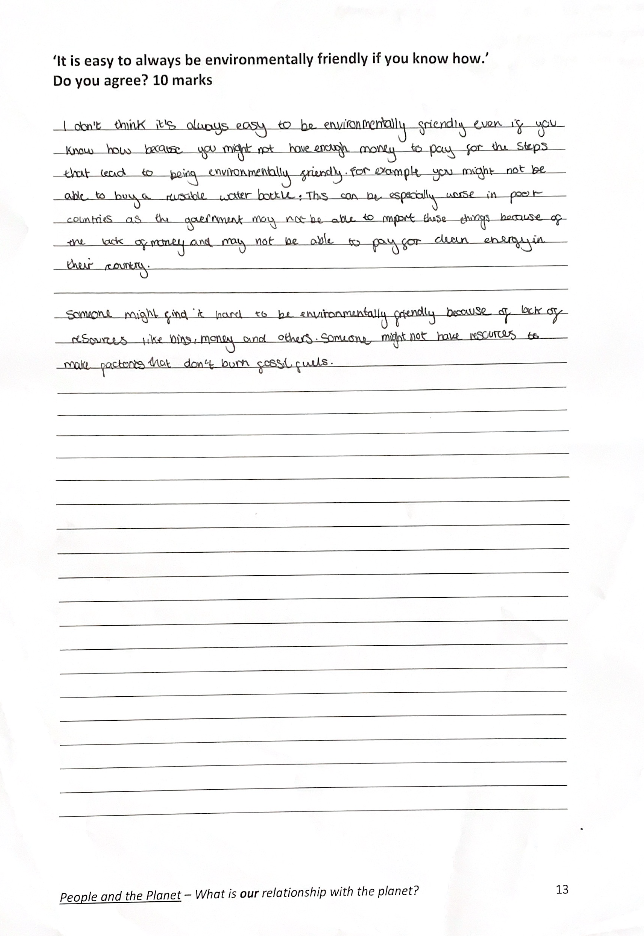 'It is easy to always be environmentally friendly if you know how.'
Do you agree? 10 marks
I don't think it's always easy to be environmentally friendly even if you
know how because you might not have enough money to pay for the steps
that lead to being environmentally friendly. For example you might not be
able to buy a reusable water bottle. This can be especially worse in poor
countries as the government may not be able to import these things because of
the lack of money and may not be able to pay for clean energy in
their country.
Someone might find it hard to be environmentally friendly because of lack of
resources like bins, money and others. Someone might not have resources to
make factories that don't burn fossil fuels.
People and the Planet – What is our relationship with the planet?
13